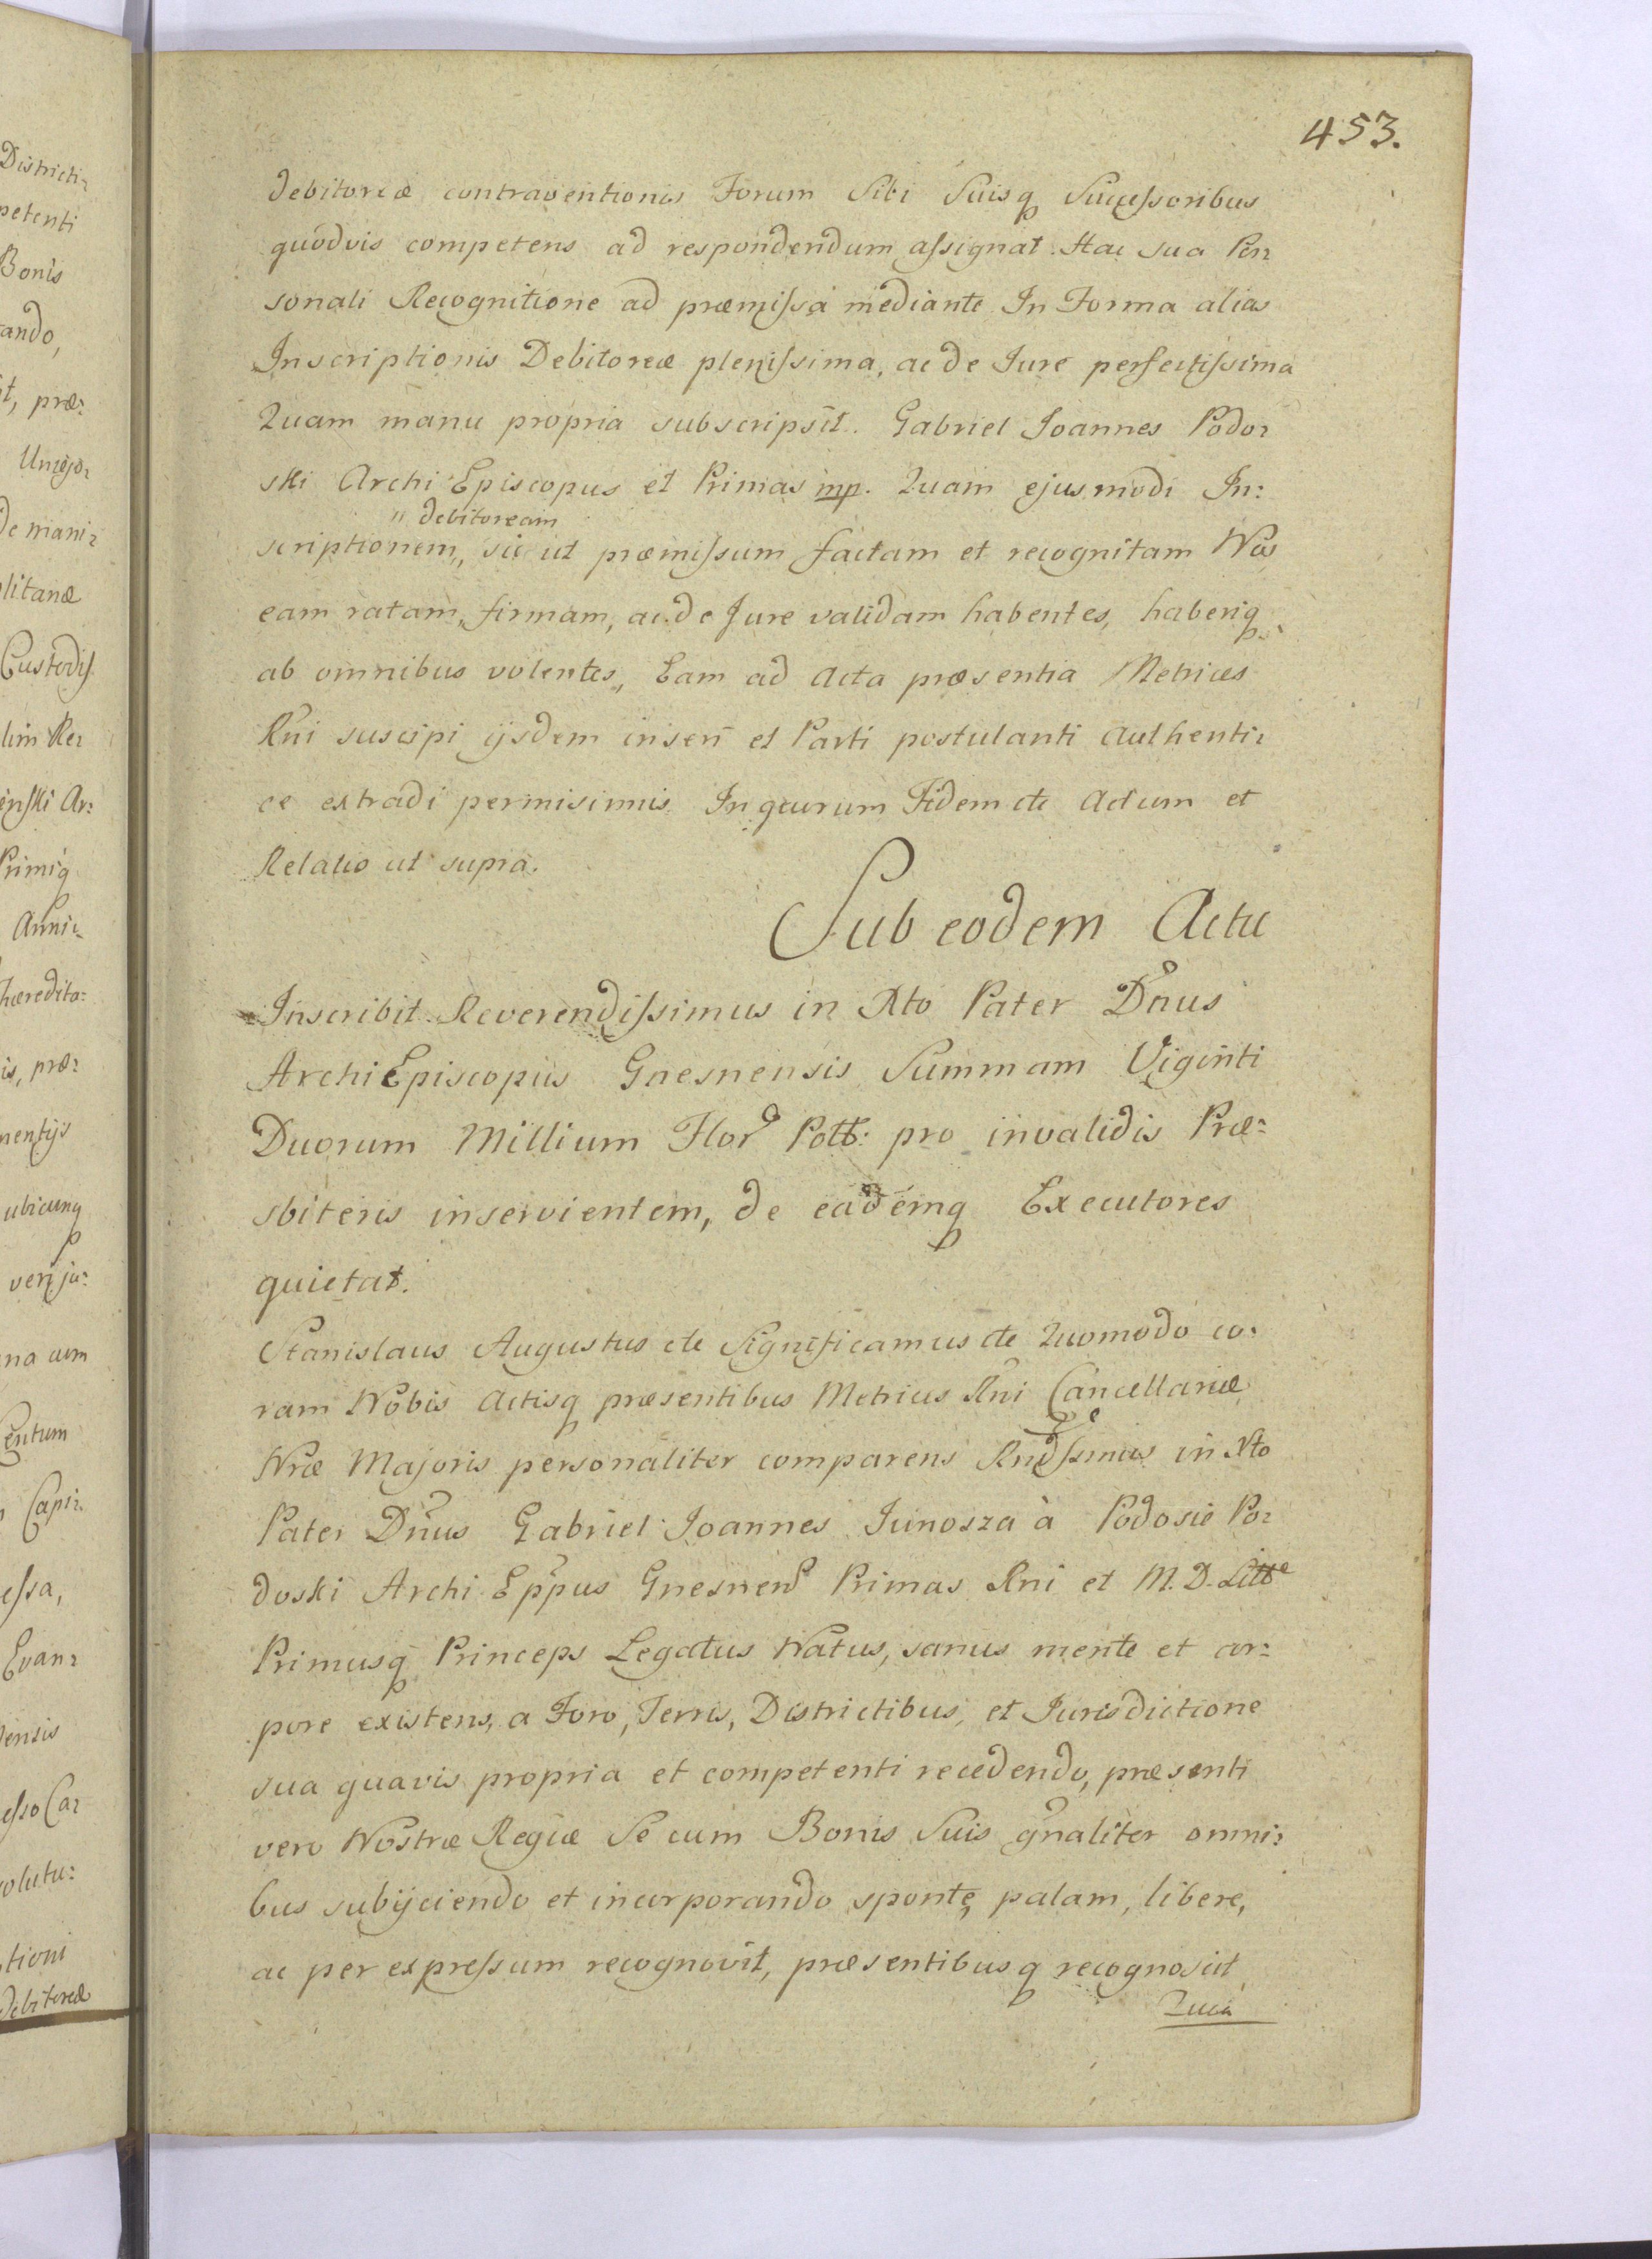 453.
debitoreæ contraventionis Forum Sibi Suisq Successoribus
quodvis competens ad respondendum assignat. Hac sua Per=
sonali Recognitione ad præmissa mediante In Forma alias
Inscriptionis Debitoreæ plenissima, ac de Jure perfectissima
Quam manu propria subscripsit. Gabriel Joannes Podo=
ski Archi Episcopus et Primas mp. Quam ejusmodi In=
" debitoream
scriptionem,, sic ut præmissum factam et recognitam Nos
eam ratam, firmam, ac de Jure validam habentes, haberiq
ab omnibus volentes, Eam ad Acta præsentia Metrices
Rni suscipi ijsdem inseri et Parti postulanti authenti=
ce extradi permisimus. In quorum Fidem etc Actum et
Relatio ut supra.
Sub eodem Actu
Inscribit Reverendissimus in Xto Pater Dnus
Archi Episcopus Gnesnensis Summam Viginti
Duorum Millium Flor Poll: pro invalidis Præ=
sbiteris inservientem, de eademq Executores
quietat.
Stanislaus Augustus etc Significamus etc Quomodo co=
ram Nobis Actisq præsentibus Metrices Rni Cancellariæ
Nræ Majoris personaliter comparens Rndssimus in Xto
Pater Dnus Gabriel Joannes Junosza à Podosie Po=
doski Archi Eppus Gnesnens Primas Rni et M. D. Litt
Primusq Princeps Legatus Natus, sanus mente et cor=
pore existens, a Foro, Terris, Districtibus, et Jurisdictione
sua quavis propria et competenti recedendo, præsenti
vero Nostræ Regiæ Se cum Bonis Suis gnaliter omni=
bus subijciendo et incorporando sponte, palam, libere,
ac per expressum recognovit, præsentibusq recognoscit,
Quia
Districti=
petenti
Bonis
tando,
it, præ=
Uniejo=
de mani=
olitanæ
Custodis
lim Re=
inski Ar=
Primiq
Anni
hæredita=
is, præ=
mentijs
ubicunq
veri ju=
na cum
Centum
Capi=
essa,
Evan=
densis
esso Ca=
volutu=
tioni
debitoreæ